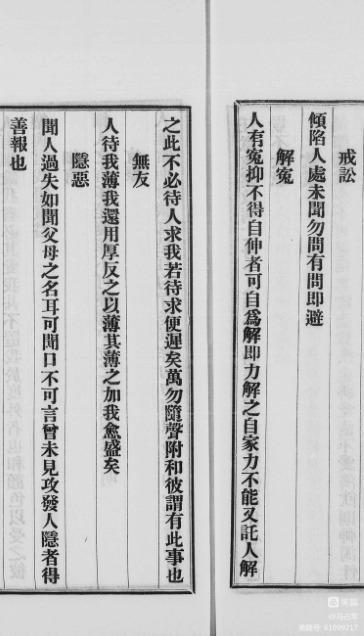 戒訟
傾陷人處未聞勿問有問即避
解寃
人有寃抑不得自伸者可自爲解即力解之自家力不能又託人解
之此不必待人求我若待求便遲矣萬勿隨聲附和彼謂有此事也
無友
人待我薄我還用厚反之以薄其薄之加我愈盛矣
隱惡
聞人過失如聞父母之名耳可聞口不可言曾未見攻發人隱者得
善報也